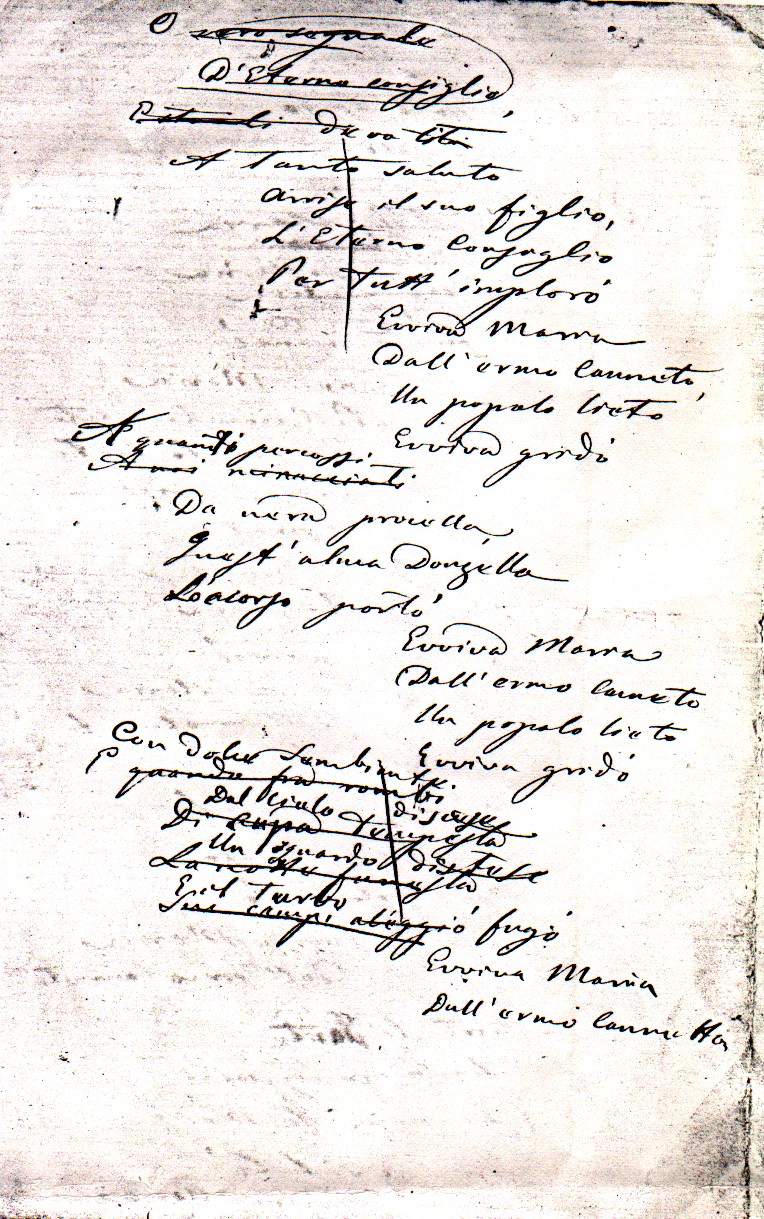 O
D'Eterno consiglio,
A Tanto saluto
Arrise il suo figlio,
L'Eterno Consiglio
Per Tutt' implorò
Evviva Maria
Dall'ermo Canneto,
Un popolo lieto
Evviva gridò
A quanti percossi
A noi minacciati
Da nera procella,
Quest'alma Donzella
Socorso portò
Evviva Maria
Dall'ermo Canneto
Un popolo lieto
Evviva gridò
Con Dolce Sembiante
E quando fra nembi
Dal Cielo discese
Di cupa Tempesta
Un sguardo distese
La notte funesta
E il Turbo fugò
Sui campi
Evviva Maria
Dall'ermo